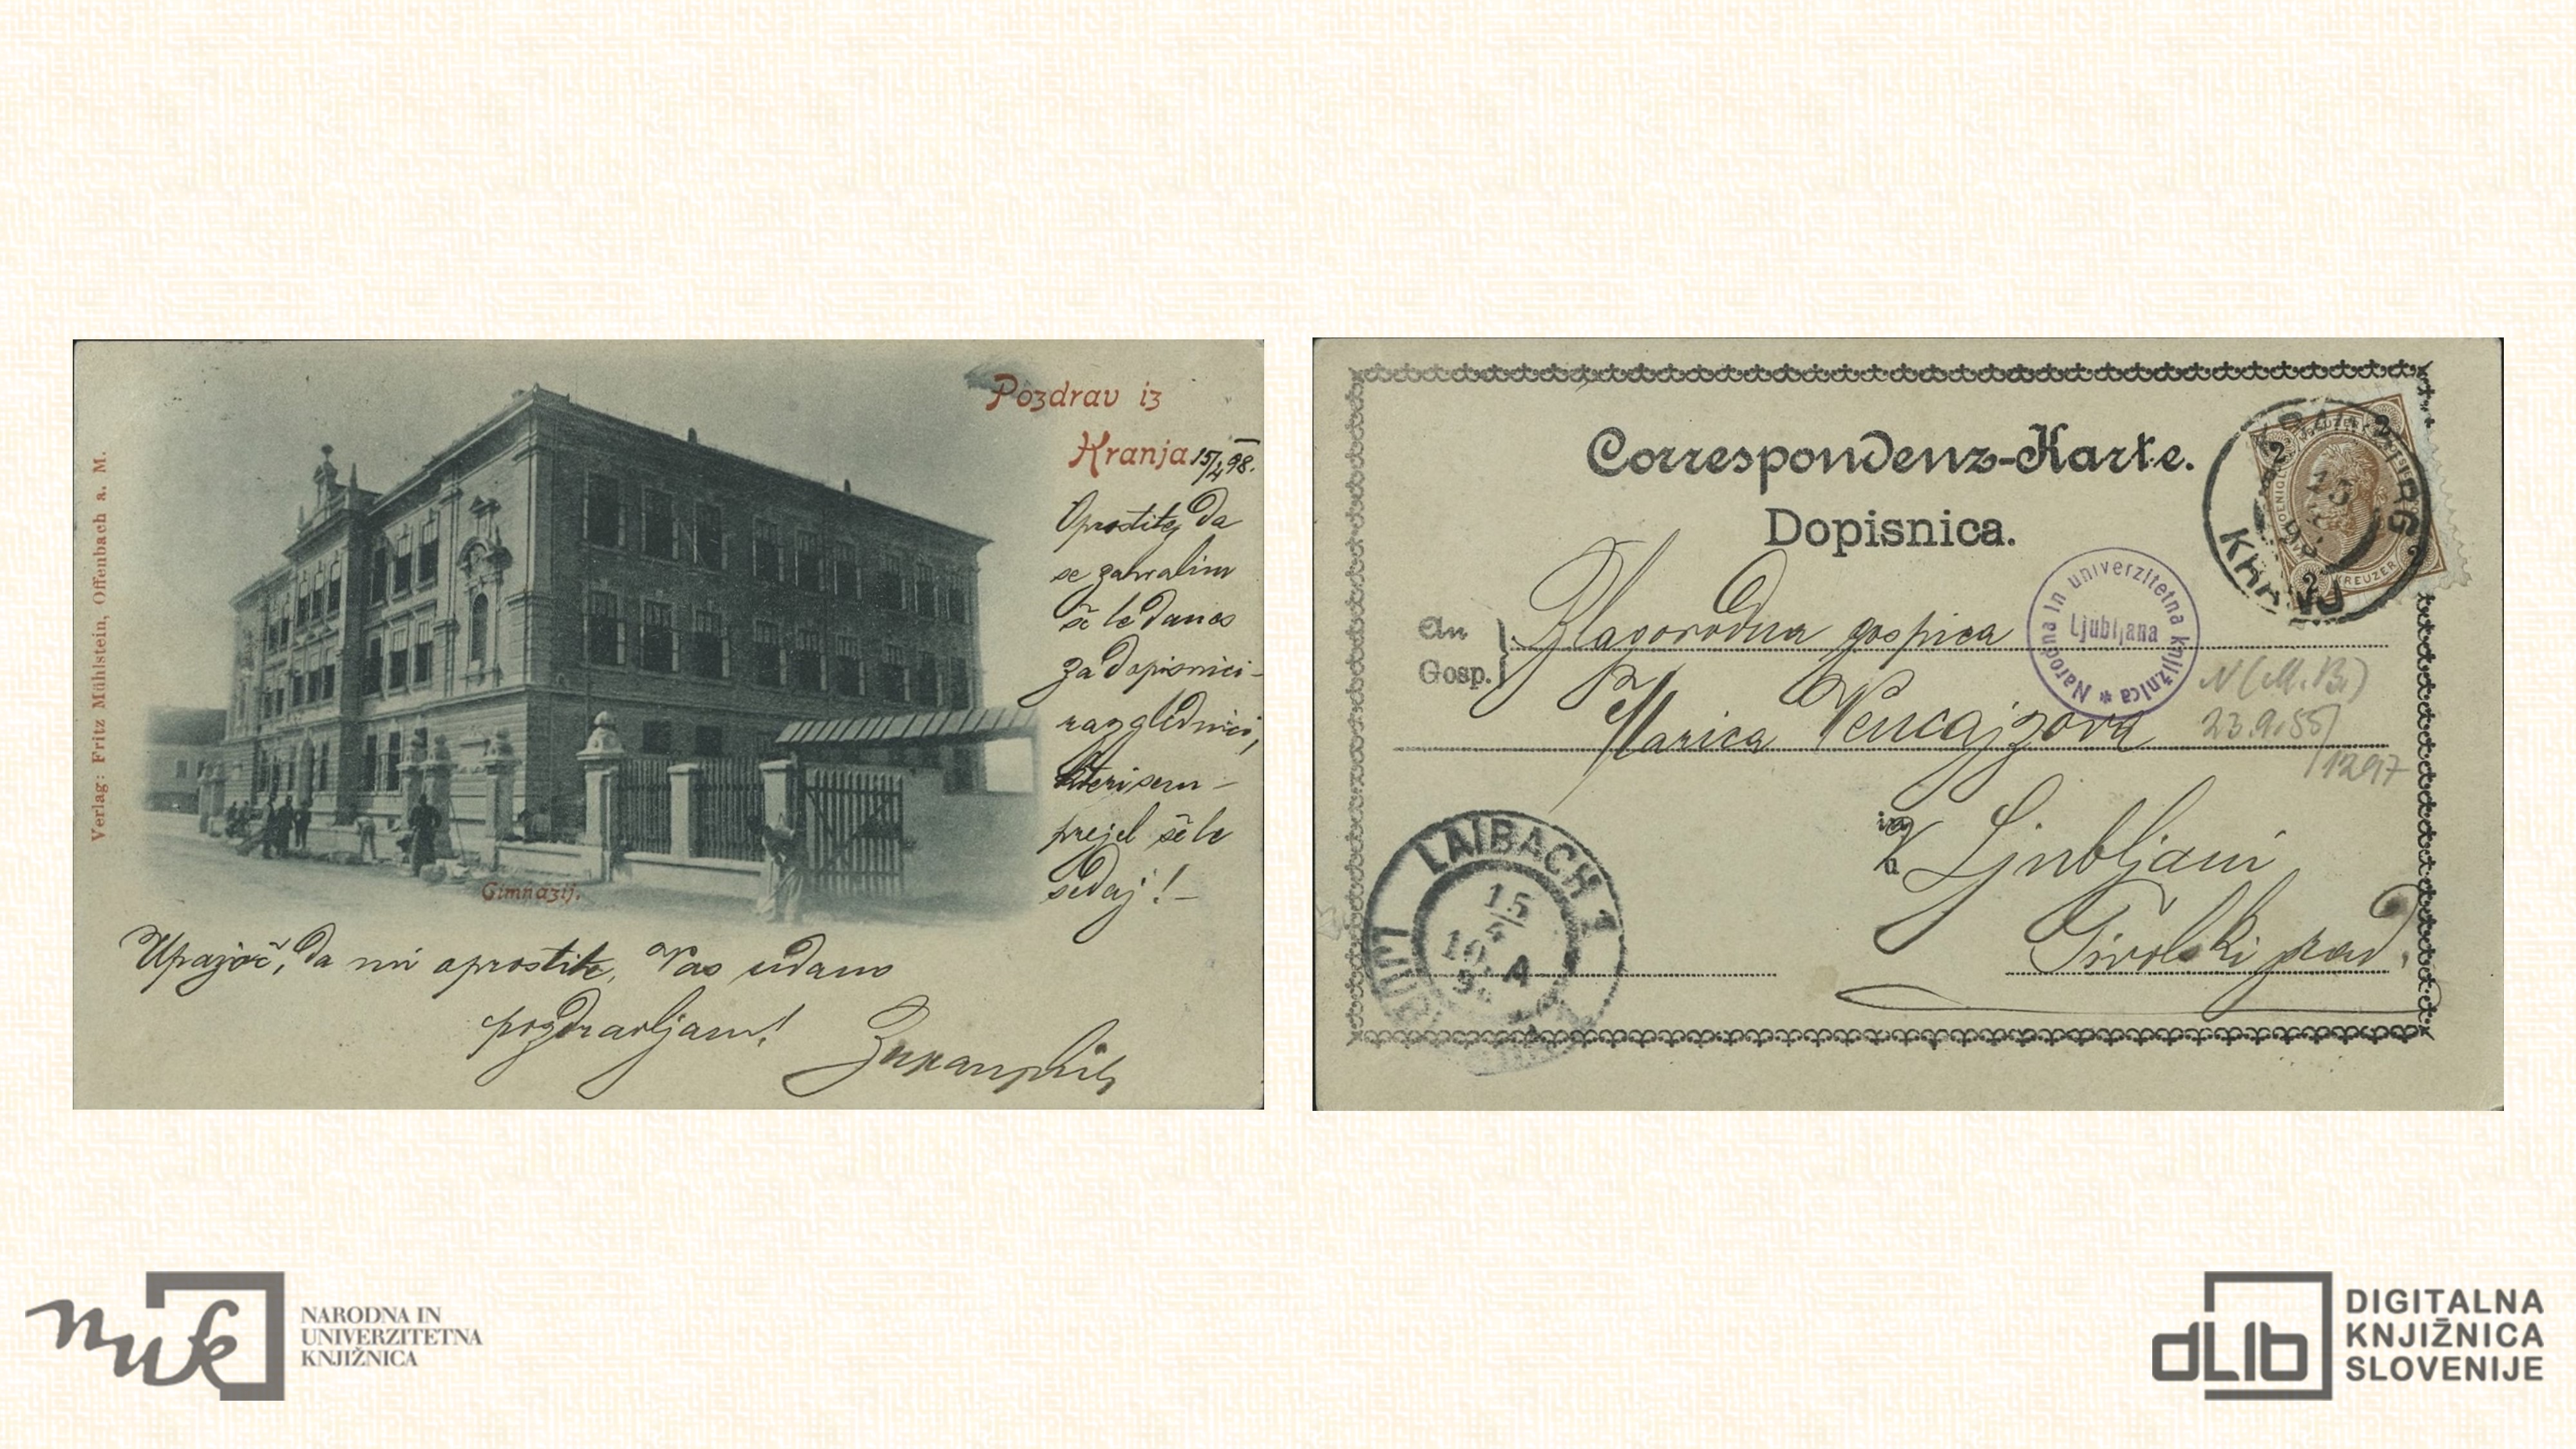 Pozdrav iz
Kranja 15/4 98.
Oprostite, da
se zahvalim
še le danes
za dopisnici-
razglednici,
kteri sem
prejel še le
sedaj! –
Upajoč, da mi oprostite, Vas udano
pozdravljam!
Gimnázij.
Verlag: Fritz Mühlstein, Offenbach a. M.
Correspondenz-Karte.
Dopisnica.
An
Gosp.
Blagorodna gospica
Marica Vencajzova
v Ljubljani
Tivolski grad.
KRAINBURG
KRANJ
2 KREUZER 2
Narodna in univerzitetna knjižnica
Ljubljana
N (M. B.)
23.9.55/
1297
LAIBACH 1
15
4
NARODNA IN
UNIVERZITETNA
KNJIŽNICA
nuk
dLib
DIGITALNA
KNJIŽNICA
SLOVENIJE